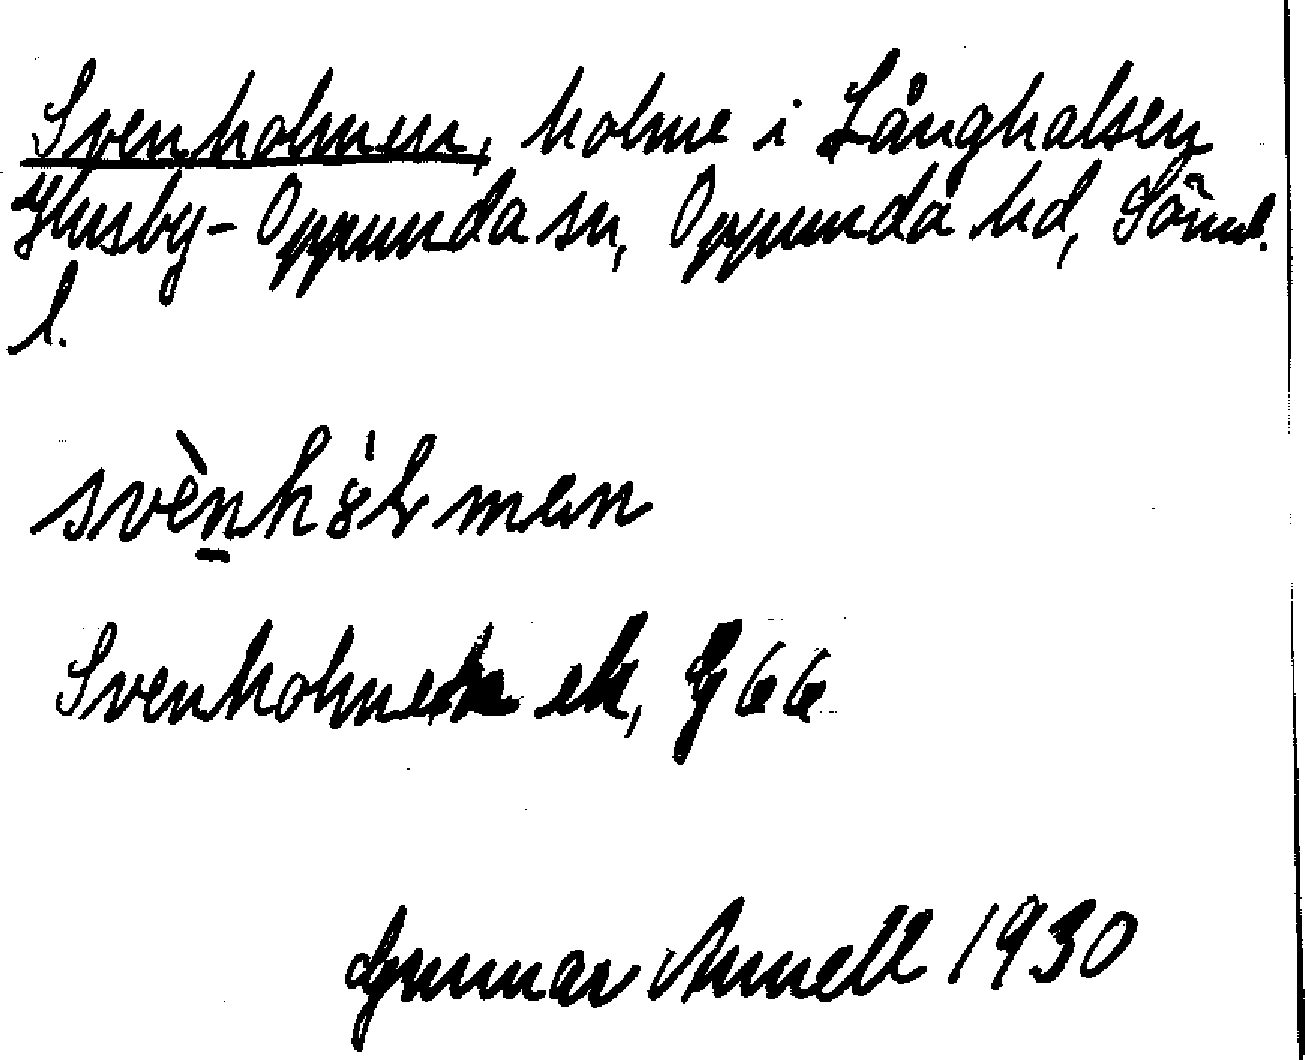 Svenholmen, holme i Långhalsen
Husby-Oppunda sn, Oppunda hd, Söml.
l.
svènhòlmen
Svenholmen ek, G 66
Gunnar Annell 1930